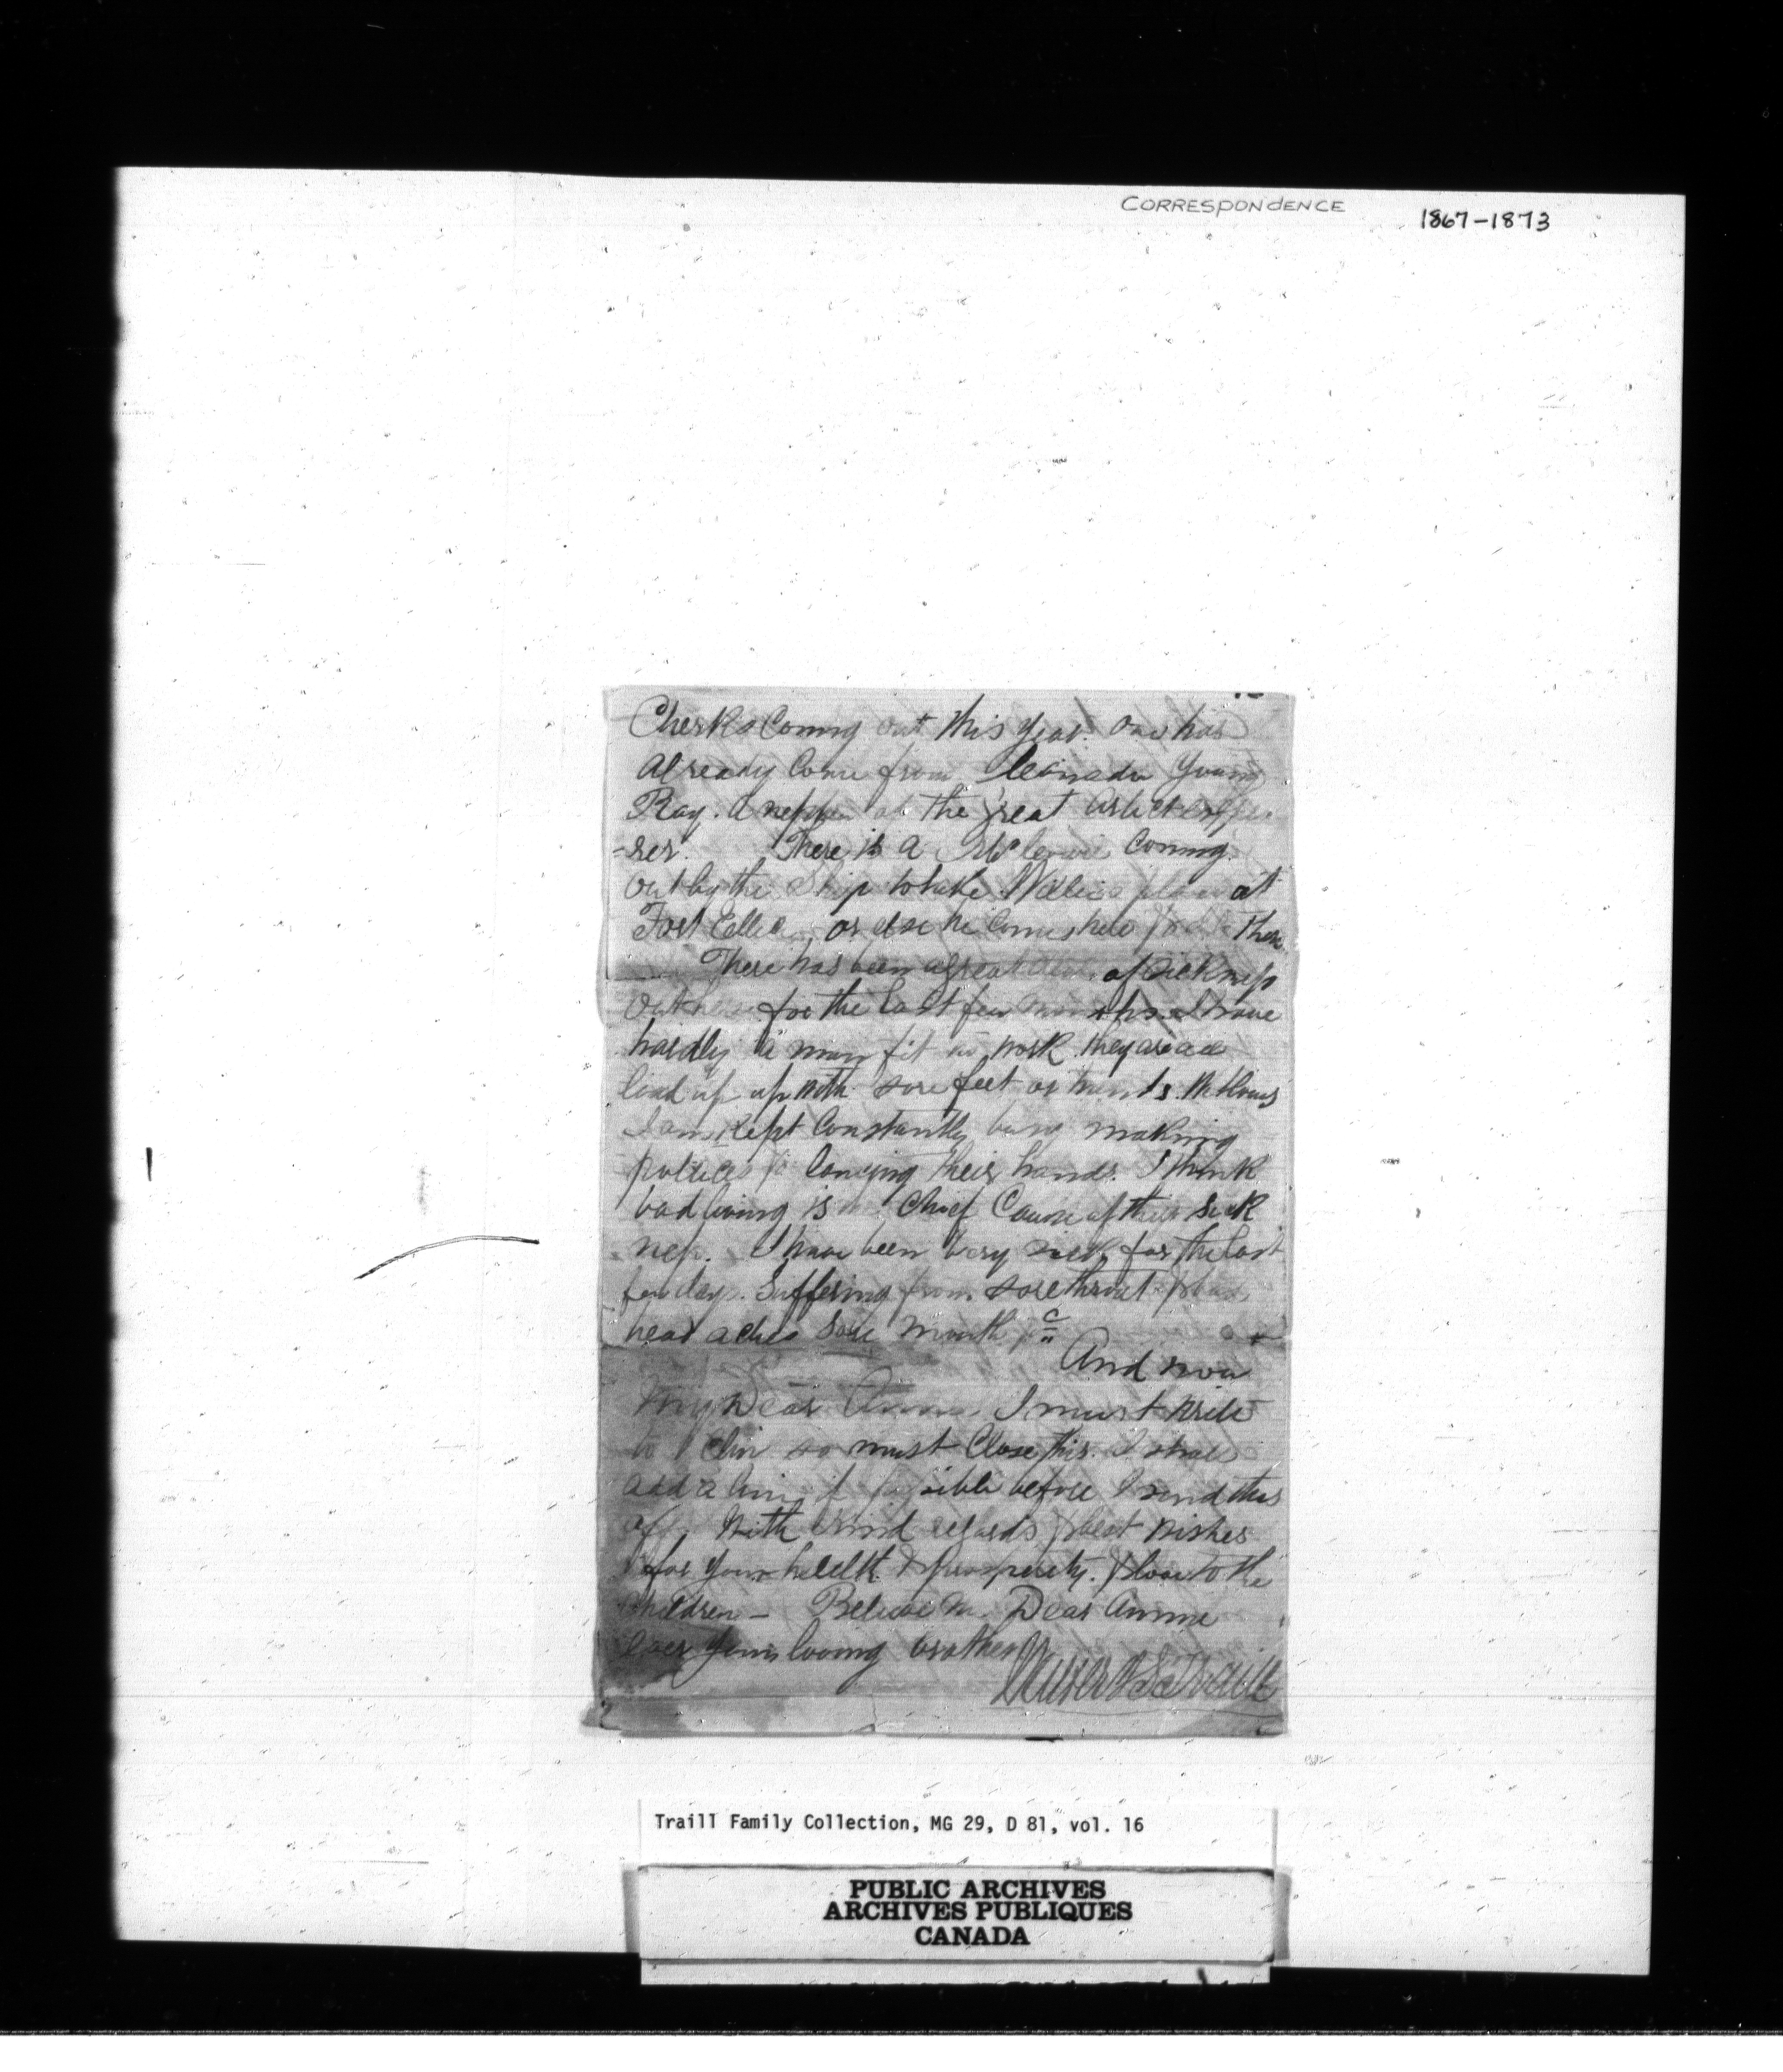 CORRESPONDENCE
1867-1873
Clerks Coming out this year. One has
already Come from Canada Young
Ray. A nephew of the great Arctic
There is a Mr Coming
out by the Ship to take Willies place at
Fort Ellice or else he Comes here & I There
There has been a great deal of Sickness
out here for the last few months. I have
hardly a man fit to work they are all
laid up up with sore feet or hands.
I am Kept Constantly busy making
poltices & lancing their hands. I think
bad living is the Chief Cause of their Sick
-ness. I have been very sick for the last
few days. Suffering from sore throat &
head aches Sore Mouth &c
And now
My Dear Annie I must write
to so must Close this. I shall
add a line if possible before I send this
off. With kind regards & best wishes
for your helelth & prosperity. & love to the
children - Believe me Dear Annie
Ever Your loving brother
Traill
Traill Family Collection, MG 29, D 81, vol. 16
PUBLIC ARCHIVES
ARCHIVES PUBLIQUES
CANADA